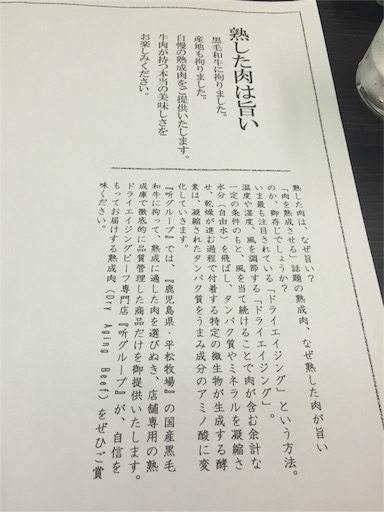 熟した肉は旨い
黒毛和牛に拘りました。
産地も拘りました。
自慢の熟成肉をご提供いたします。
牛肉が持つ本当の美味しさを
お楽しみください。
熟した肉は、なぜ旨い?
「肉を熟成させる」話題の熟成肉、なぜ熟した肉が旨い
のか、御存じでしょうか?
いま最も注目されている「ドライエイジング」という方法。
温度や湿度、風を調節する「ドライエイジング」。
一定の条件のもと、風を当て続けることで肉が含む余計な
水分(自由水)を飛ばし、タンパク質やミネラルを凝縮さ
せ、乾燥が進む過程で付着する特定の微生物が生成する酵
素は、凝縮されたタンパク質をうまみ成分のアミノ酸に変
化していきます。
『听グループ』では、『鹿児島県・平松牧場』の国産黒毛
和牛に拘って、熟成に適した肉を選びぬき、店舗専用の熟
成庫で徹底的に品質管理した商品だけを御提供いたします。
ドライエイジングビーフ専門店『听グループ』が、自信を
もってお届けする熟成肉(Dry Aging Beef)をぜひご賞
味ください。